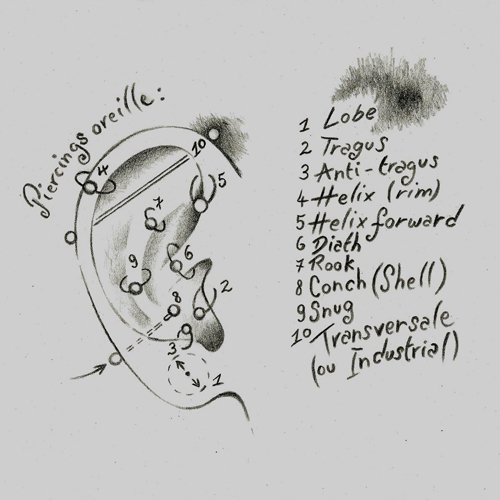 Piercings oreille:
10
4
5
7
6
9
8
2
3
1
1 Lobe
2 Tragus
3 Anti-tragus
4 Helix (rim)
5 Helix forward
6 Diath
7 Rook
8 Conch (Shell)
9 Snug
10 Transversale
(ou Industrial)